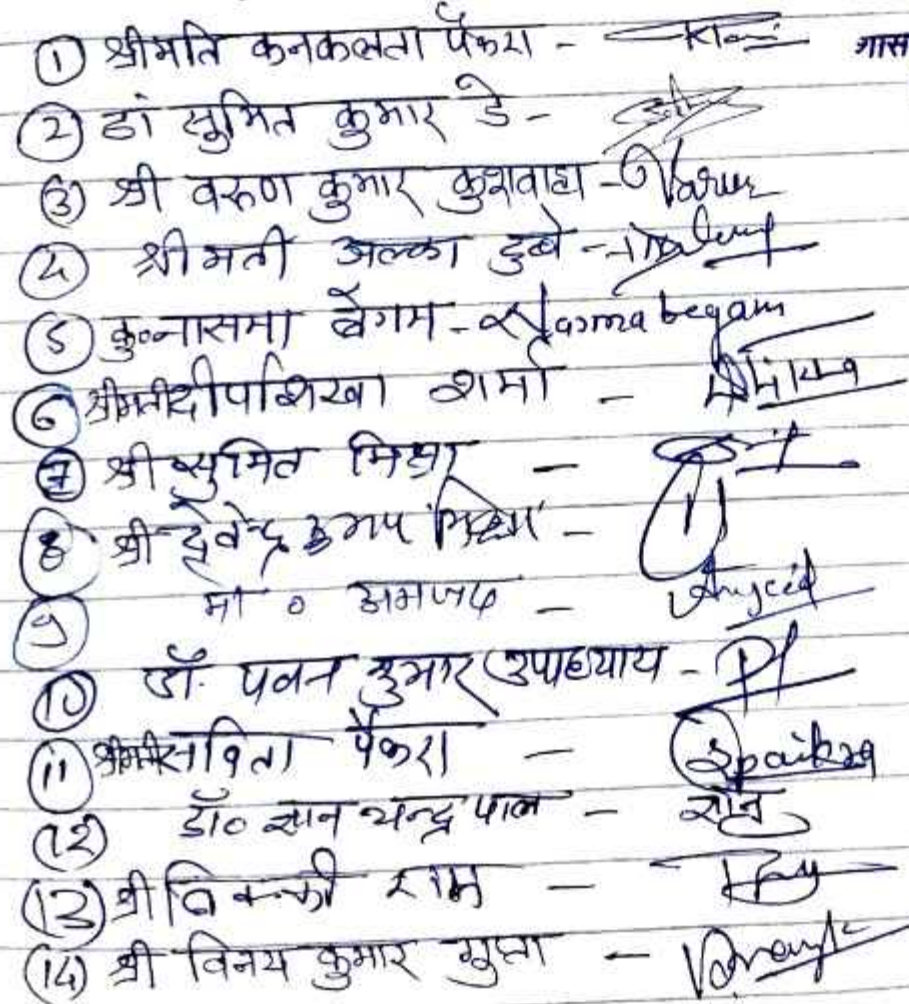 ① श्रीमति कनकलता पैकरा - गास
② डां सुमित कुमार डे -
③ श्री वरुण कुमार कुशवाहा - Varun
④ श्रीमती अल्का दुबे -
⑤ कु० नासमा बेगम - Nasma begam
⑥ श्रीमती दीपशिखा शर्मा -
⑦ श्री सुमित मिश्रा -
⑧ श्री देवेन्द्र कुमार मिश्रा -
⑨ मो० अमजद -
⑩ डॉ. पवन कुमार उपाध्याय -
⑪ श्रीमती सविता पैकरा - Spaikra
(12) डॉ० ज्ञान चन्द्र पाल -
(13) श्री विक्की राम -
(14) श्री विनय कुमार गुप्ता -